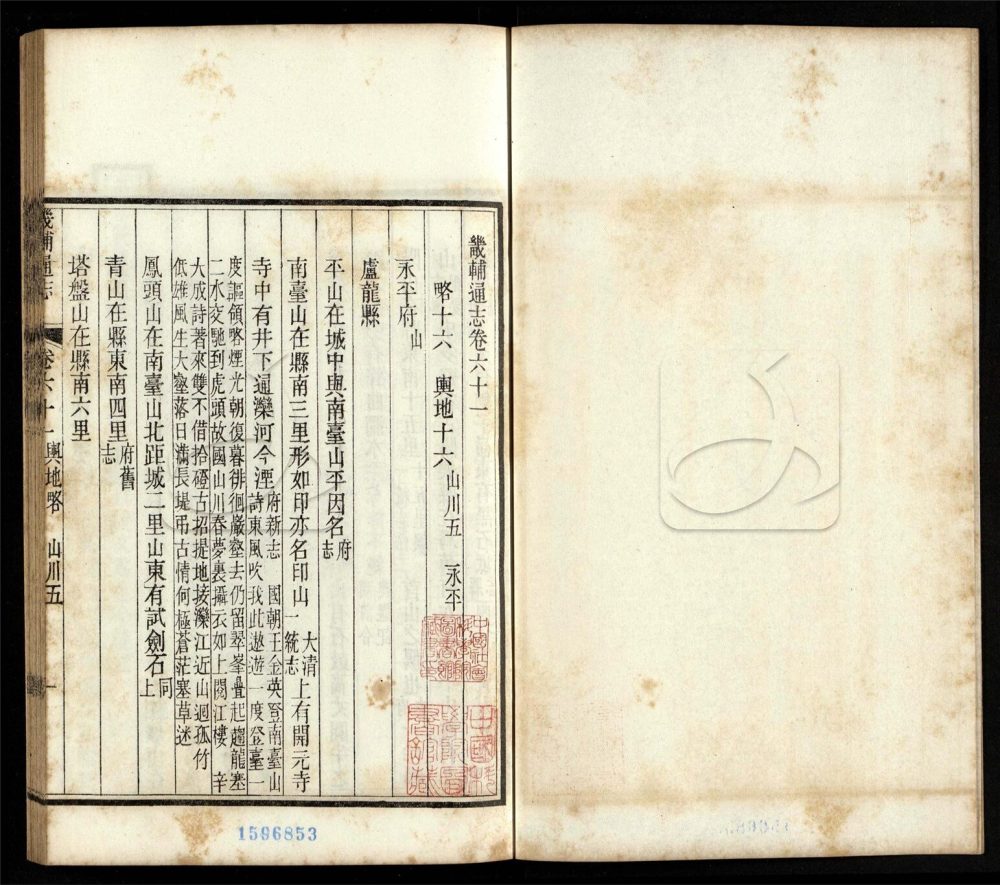 畿輔通志卷六十一
略十六　輿地十六　山川五　永平
永平府山
盧龍縣
平山在城中與南臺山平因名府志
南臺山在縣南三里形如印亦名印山大清一統志上有開元寺
寺中有井下通灤河今湮府新志　國朝王金英登南臺山
詩東風吹我此遨遊一度登臺一
度謳領略煙光朝復暮徘徊巖壑去仍留翠峯疊起趨龍塞
二水交馳到虎頭故國山川春夢裏攝衣如上閱江樓　辛
大成詩著來雙不借拾磴古招提地接灤江近山迴孤竹
低雄風生大壑落日滿長堤弔古情何極蒼茫塞草迷
鳳頭山在南臺山北距城二里山東有試劍石同上
青山在縣東南四里府舊志
塔盤山在縣南六里
畿輔通志　卷六十一　輿地略　山川五　一
1596853